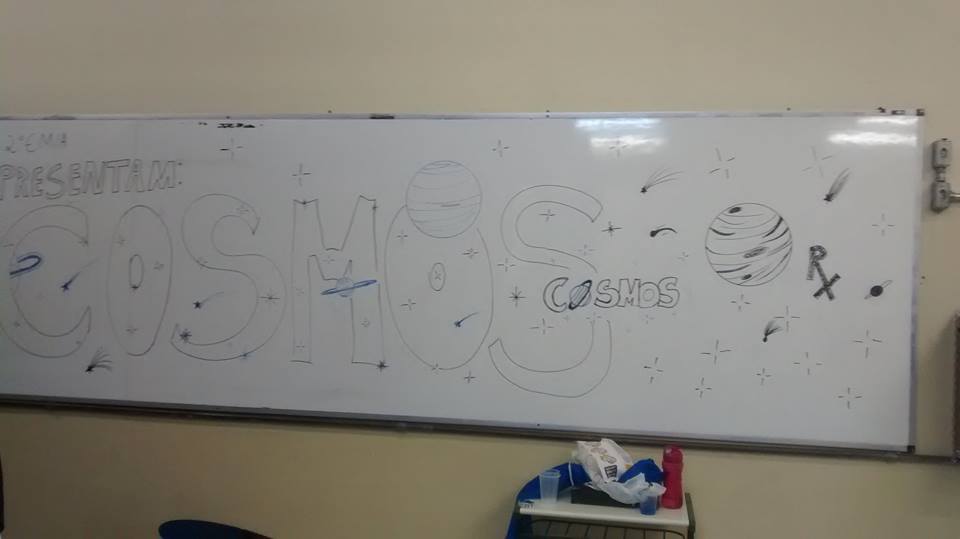 2º EMIA
PRESENTAM:
COSMOS
COSMOS
RX